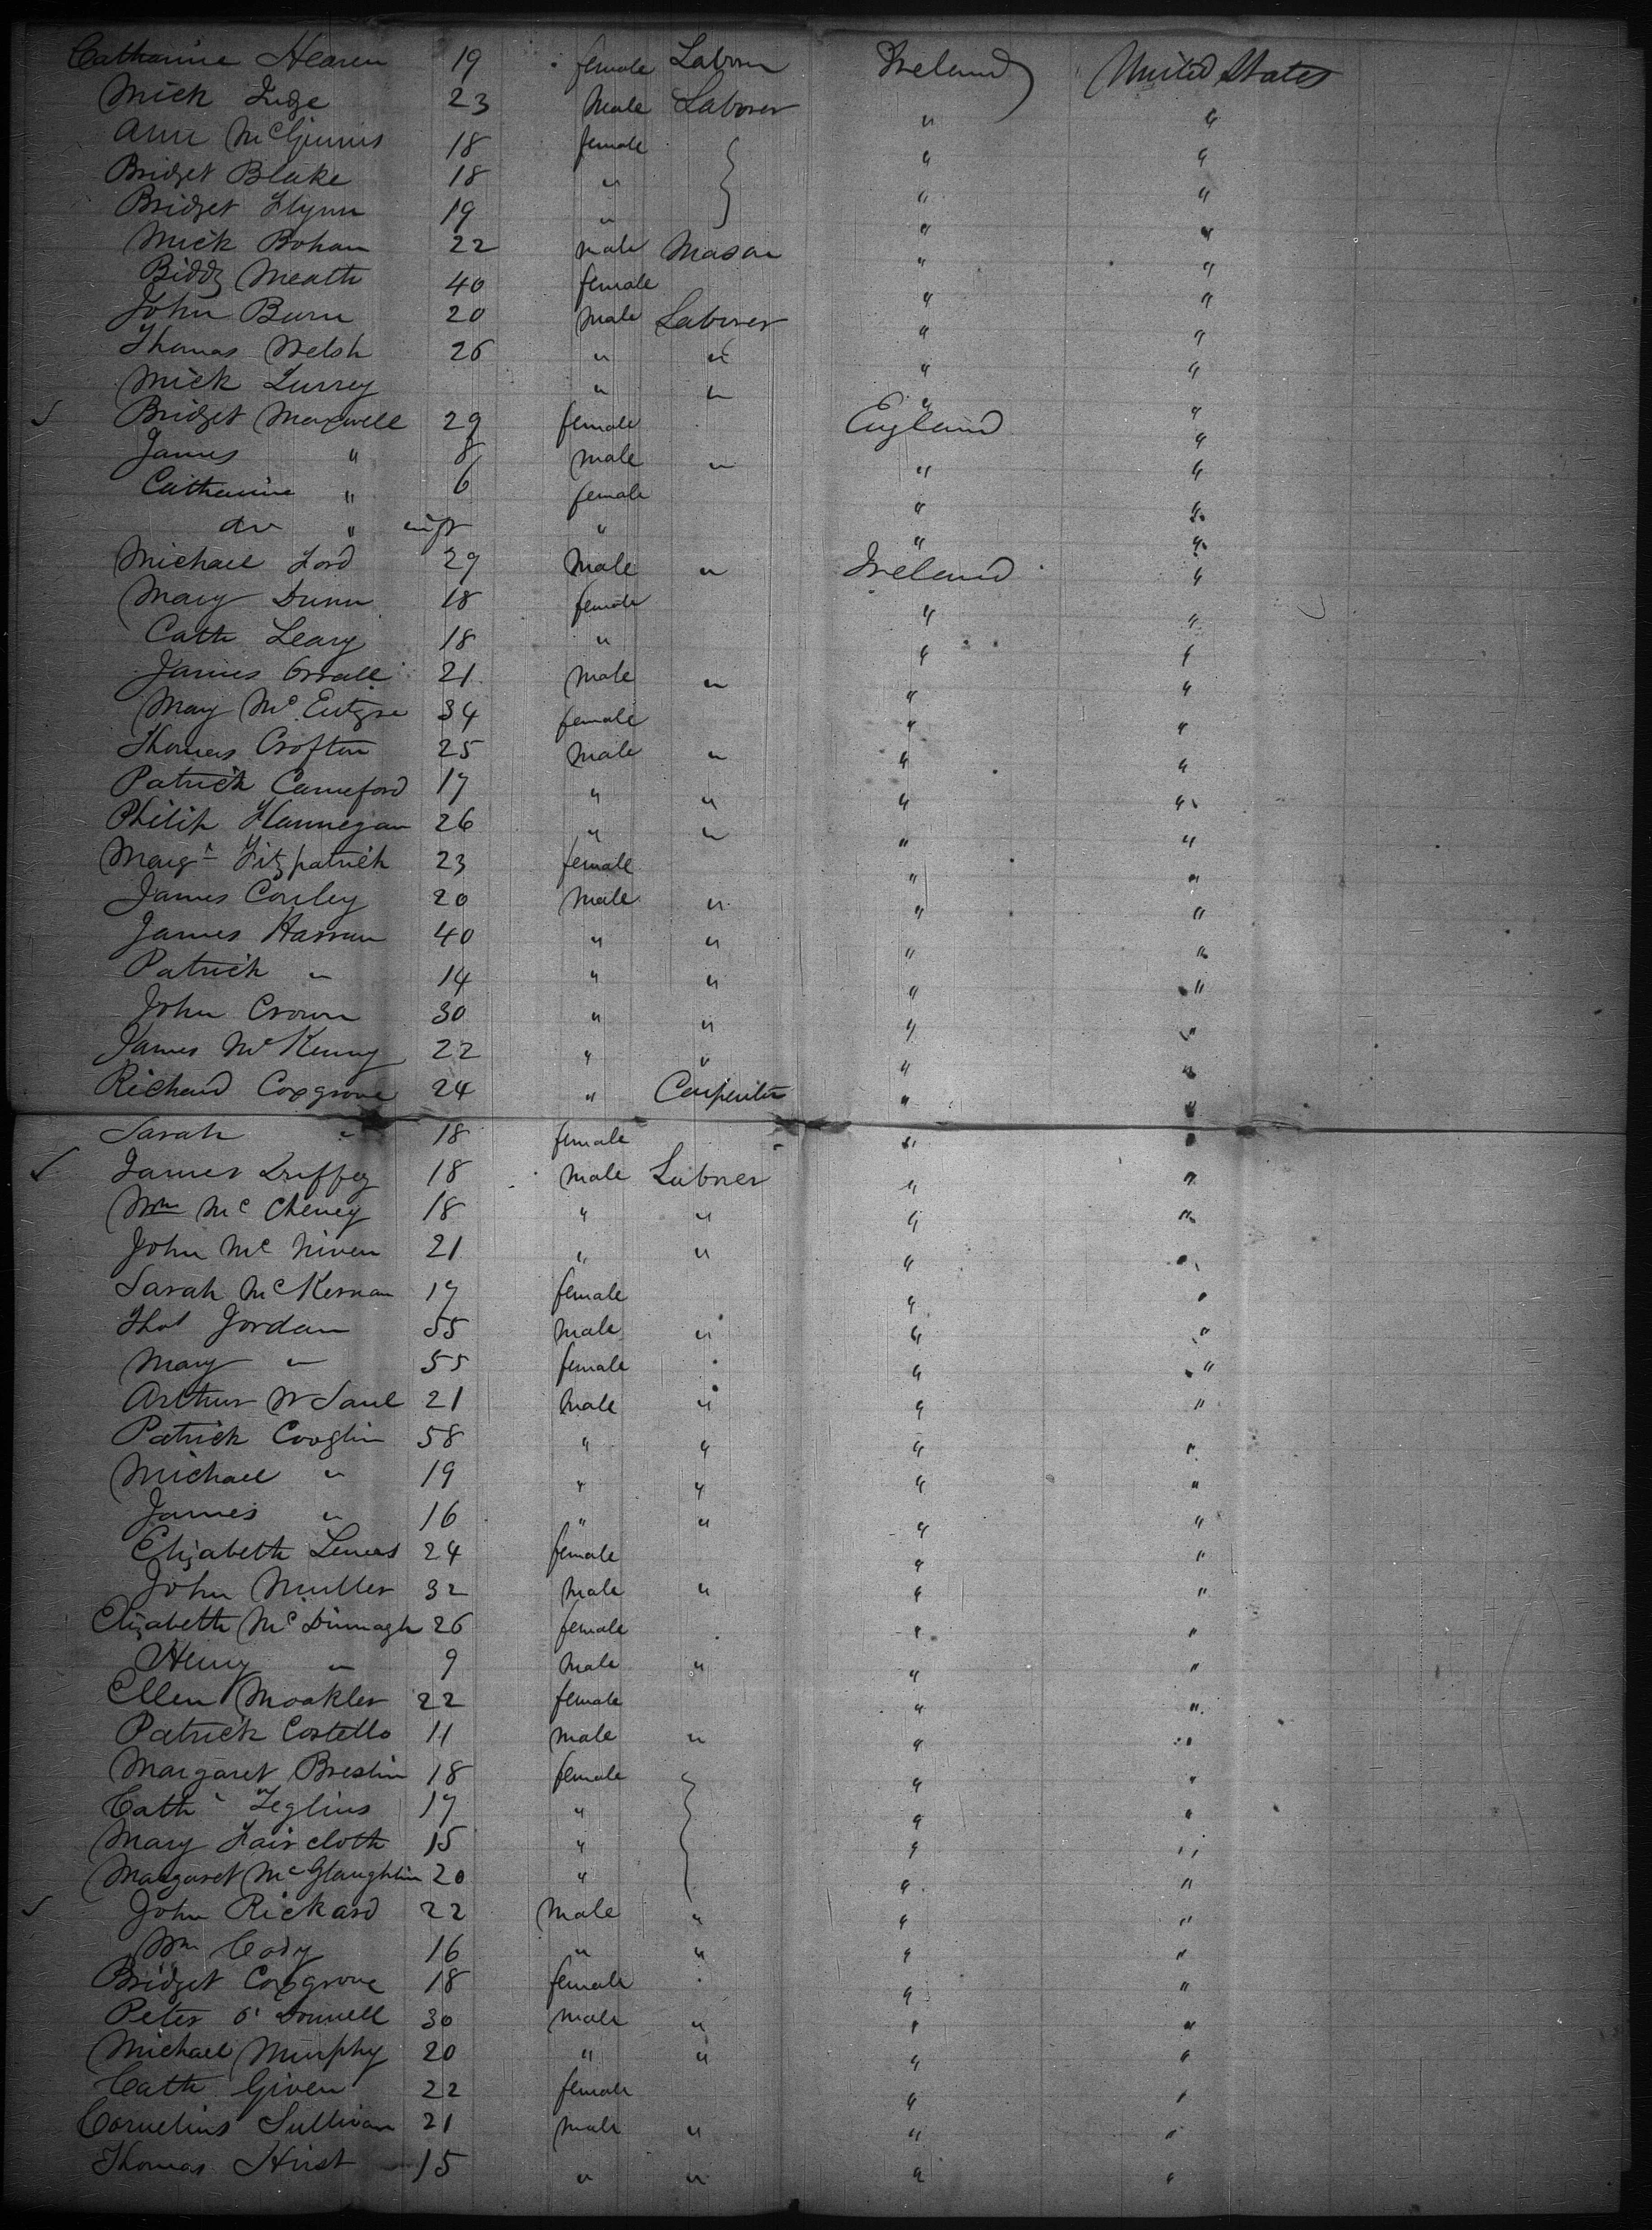 Catharine Hearen 19 female Laborer Ireland United States
Mick Judge 23 Male Laborer " "
Ann McGinnis 18 female " "
Bridget Blake 18 " " "
Bridget Flynn 19 " " "
Mick Bohan 22 male Mason " "
Biddy Meath 40 female " "
John Burn 20 Male Laborer " "
Thomas Welsh 26 " " " "
Mick Lurrey " " " "
✓ Bridget Maxwell 29 female England "
James " 8 male " " "
Catharine " 6 female " "
do " inft " " "
Michael Ford 29 Male " Ireland "
Mary Dunn 18 female " "
Cath Leary 18 " " "
James 21 male " " "
Mary Mc 34 female " "
Thomas Crofton 25 Male " " "
Patrick Canneford 17 " " " "
Philip Flannegan 26 " " " "
Margt Fitzpatrick 23 female " "
James Conley 20 Male " " "
James Hassan 40 " " " "
Patrick " 14 " " " "
John Crown 30 " " " "
James McKenny 22 " " " "
Richard Coxgrove 24 " Carpenter " "
Sarah " 18 female " "
✓ James Duffey 18 Male Laborer " "
Wm Mc Cheney 18 " " " "
John Mc Niven 21 " " " "
Sarah McKernan 17 female " "
Thos Jordan 55 Male " " "
Mary " 55 female " "
Arthur W Saul 21 Male " " "
Patrick Cooglin 58 " " " "
Michael " 19 " " " "
James " 16 " " " "
Elizabeth 24 female " "
John Muller 32 Male " " "
Elizabeth Mc Dunnagh 26 female " "
Henry " 9 Male " " "
Ellen Moakler 22 female " "
Patrick Costello 11 male " " "
Margaret Breslin 18 female " "
Cath Teglins 17 " " "
Mary Faircloth 15 " " "
Margaret McGlaughlin 20 " " "
✓ John Rickard 22 Male " " "
Wm Cody 16 " " " "
Bridget Coxgrove 18 female " "
Peter O'Donnell 30 male " " "
Michael Murphy 20 " " " "
Cath Given 22 female " "
Cornelius Sullivan 21 male " " "
Thomas Hirst 15 " " " "